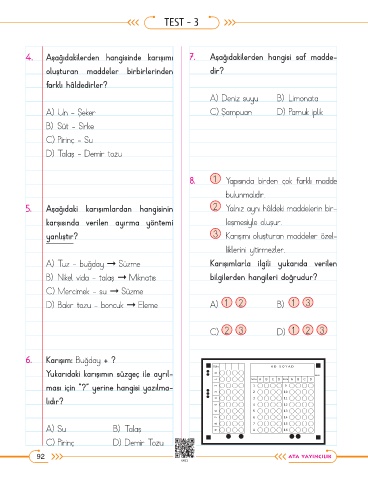 TEST - 3
4. Aşağıdakilerden hangisinde karışımı
oluşturan maddeler birbirlerinden
farklı hâldedirler?
A) Un - Şeker
B) Süt - Sirke
C) Pirinç - Su
D) Talaş - Demir tozu
5. Aşağıdaki karışımlardan hangisinin
karşısında verilen ayırma yöntemi
yanlıştır?
A) Tuz - buğday → Süzme
B) Nikel vida - talaş → Mıknatıs
C) Mercimek - su → Süzme
D) Bakır tozu - boncuk → Eleme
6. Karışım: Buğday + ?
Yukarıdaki karışımın süzgeç ile ayrıl-
ması için "?" yerine hangisi yazılma-
lıdır?
A) Su B) Talaş
C) Pirinç D) Demir Tozu
7. Aşağıdakilerden hangisi saf madde-
dir?
A) Deniz suyu B) Limonata
C) Şampuan D) Pamuk iplik
8. 1 Yapısında birden çok farklı madde
bulunmalıdır.
2 Yalnız aynı hâldeki maddelerin bir-
leşmesiyle oluşur.
3 Karışımı oluşturan maddeler özel-
liklerini yitirmezler.
Karışımlarla ilgili yukarıda verilen
bilgilerden hangileri doğrudur?
A) 1 2 B) 1 3
C) 2 3 D) 1 2 3
AD SOYAD
92
ATA YAYINCILIK